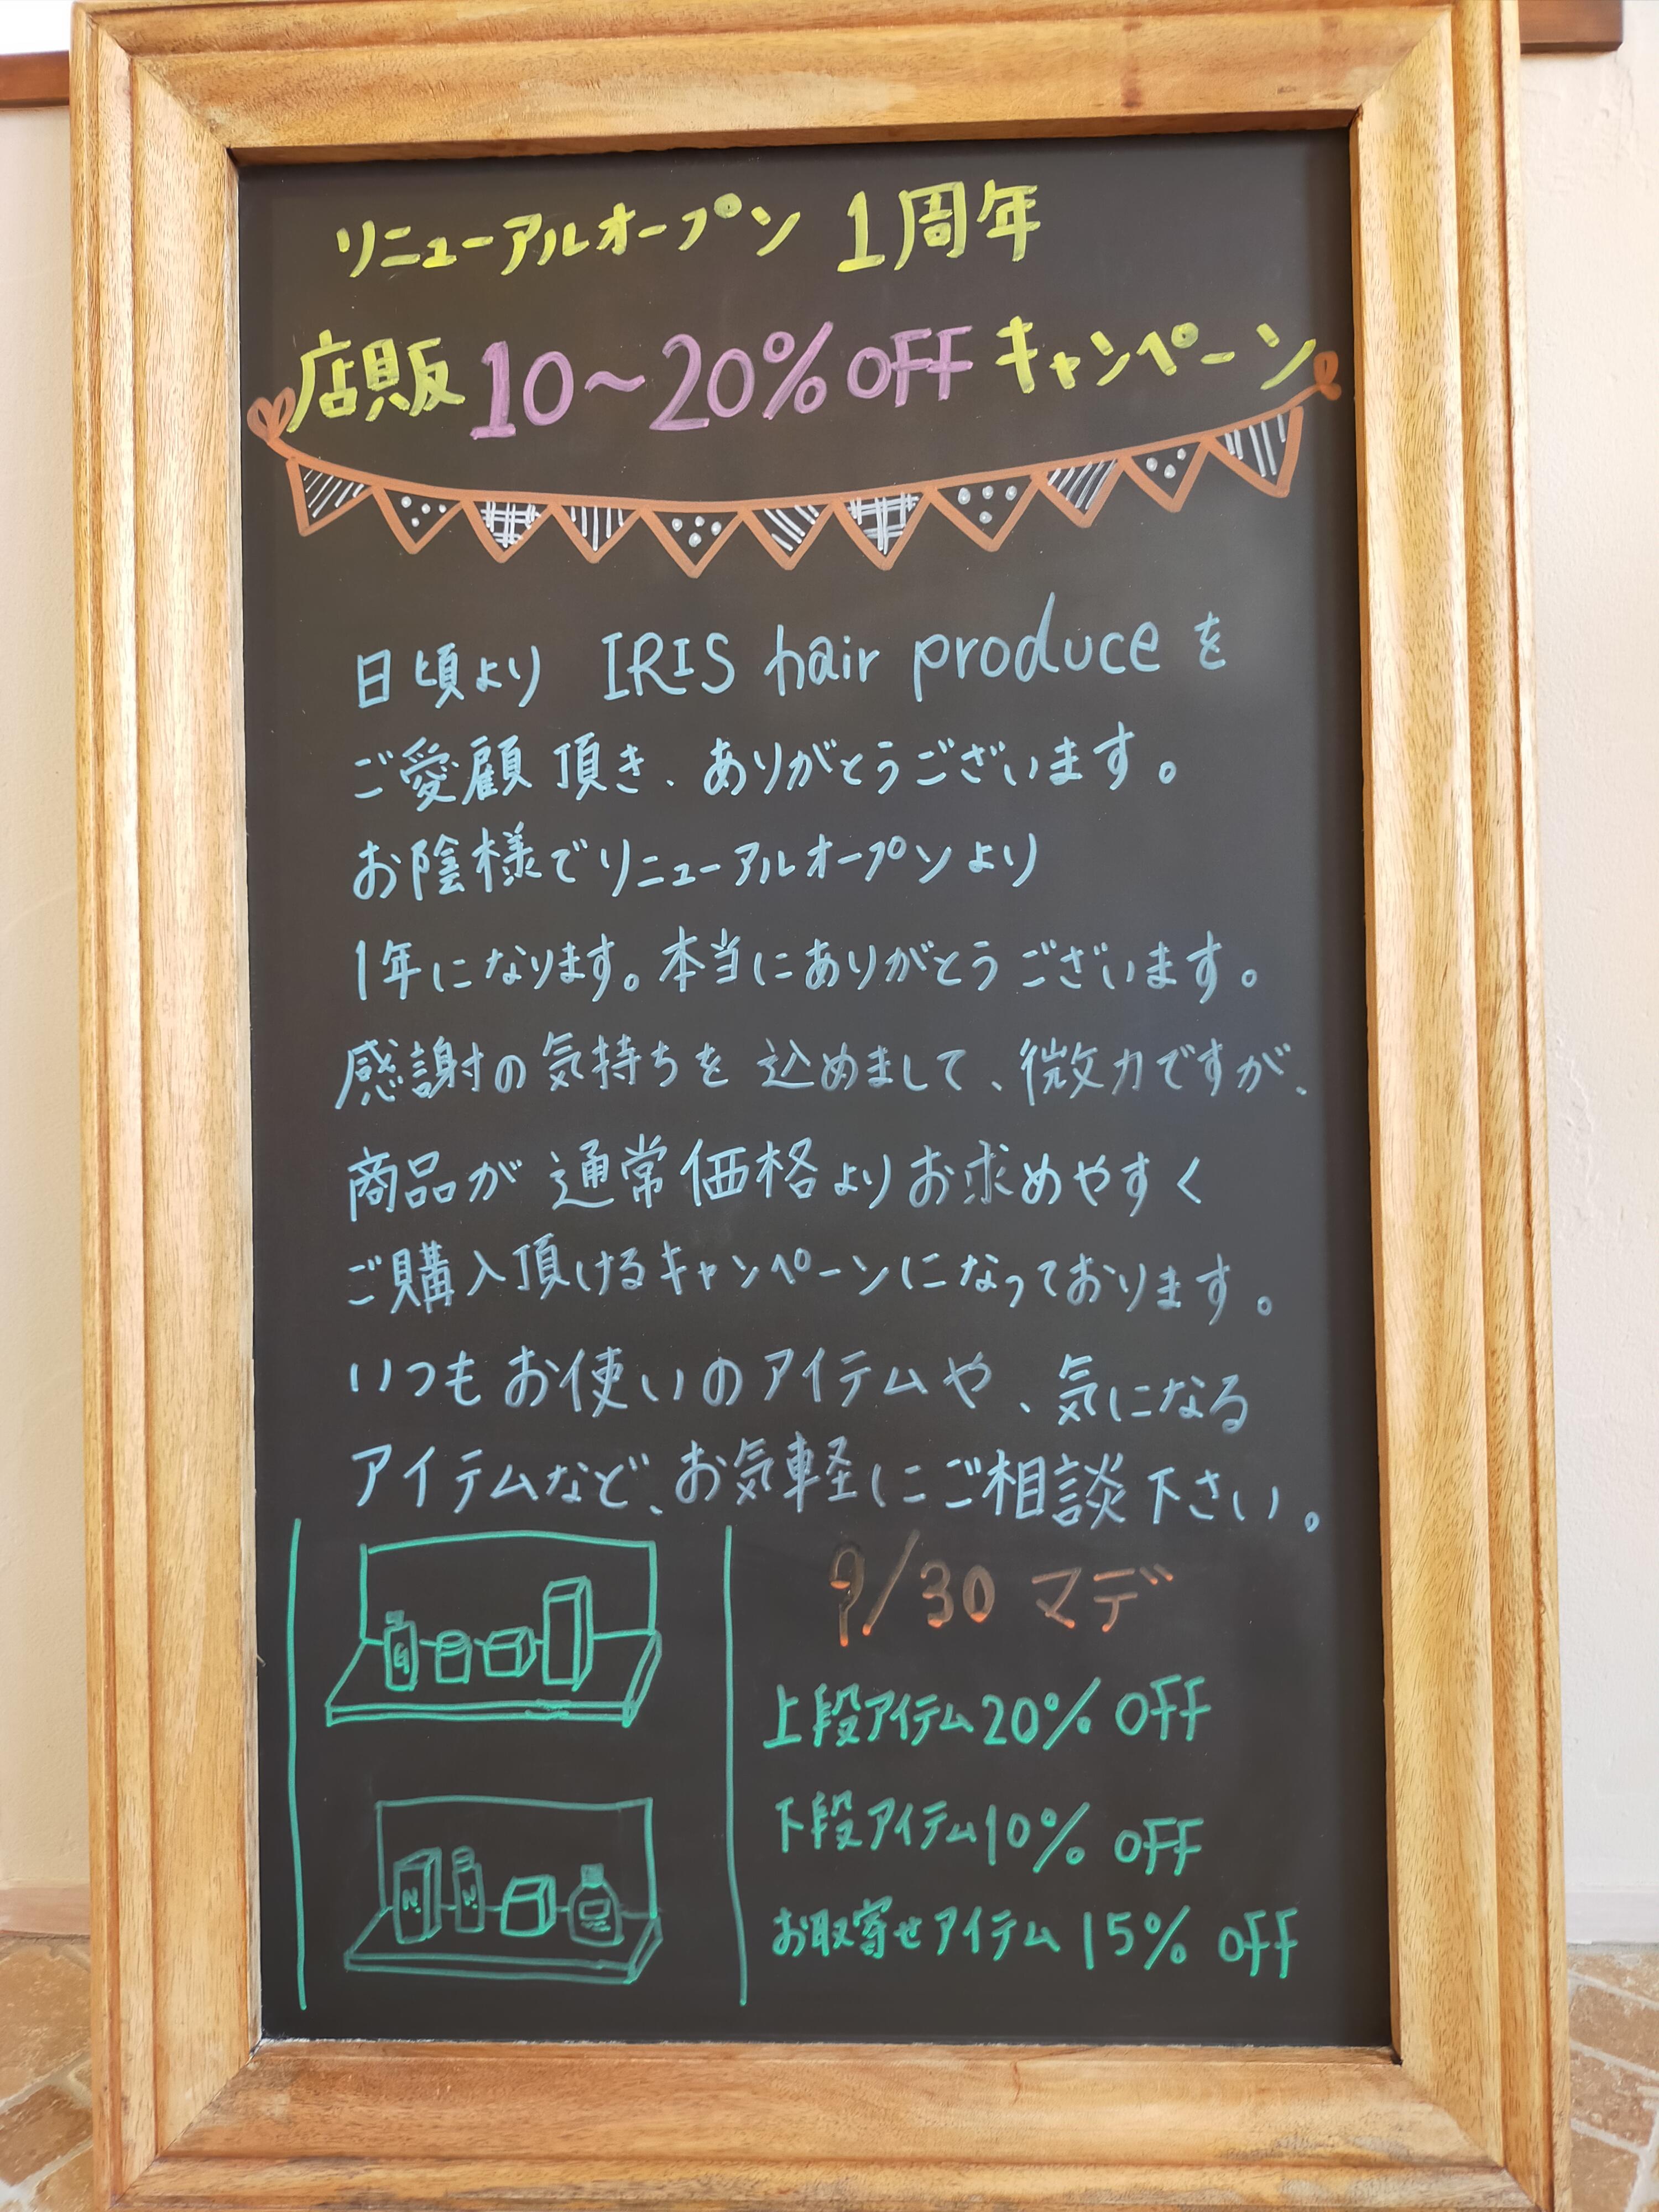 リニューアルオープン 1周年
店販 10〜20% OFF キャンペーン
日頃より IRIS hair produce を
ご愛顧 頂き、ありがとうございます。
お陰様でリニューアルオープンより
1年になります。本当にありがとうございます。
感謝の気持ちを 込めまして、微力ですが、
商品が 通常価格よりお求めやすく
ご購入頂けるキャンペーンになっております。
いつも お使いのアイテムや、気になる
アイテムなど、お気軽にご相談下さい。
9/30 マデ
上段アイテム20% OFF
下段アイテム10% OFF
お取寄せアイテム 15% OFF
N.
N.